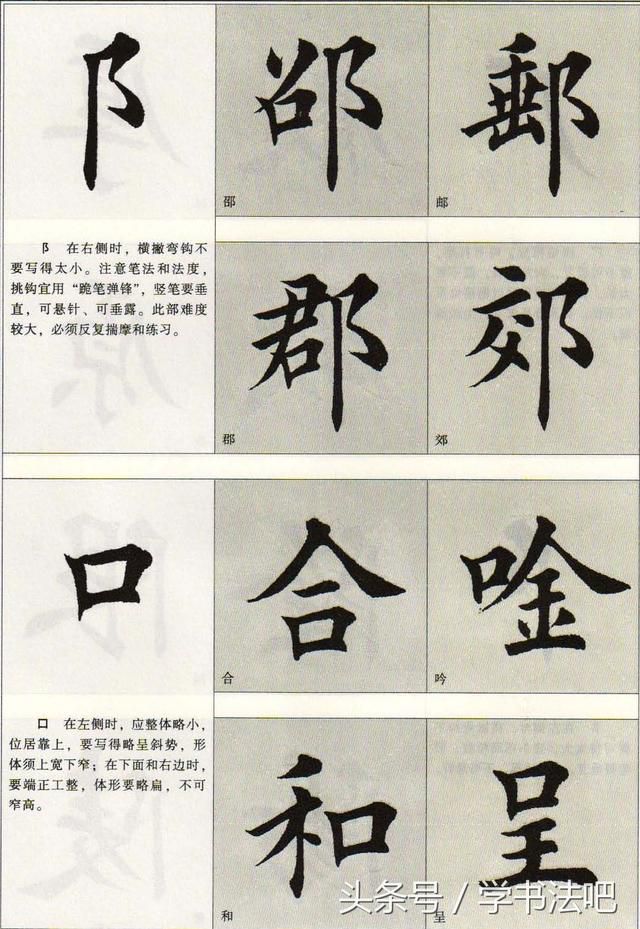 阝 邵 郵
邵 邮
阝 在右侧时，横撇弯钩不
要写得太小。注意笔法和法度，
挑钩宜用“跪笔弹锋”，竖笔要垂
直，可悬针、可垂露。此部难度
较大，必须反复揣摩和练习。
郡 郊
郡 郊
口 合 唫
合 吟
口 在左侧时，应整体略小，
位居靠上，要写得略呈斜势，形
体须上宽下窄；在下面和右边时，
要端正工整，体形要略扁，不可
窄高。
和 呈
和 呈
头条号 / 学书法吧